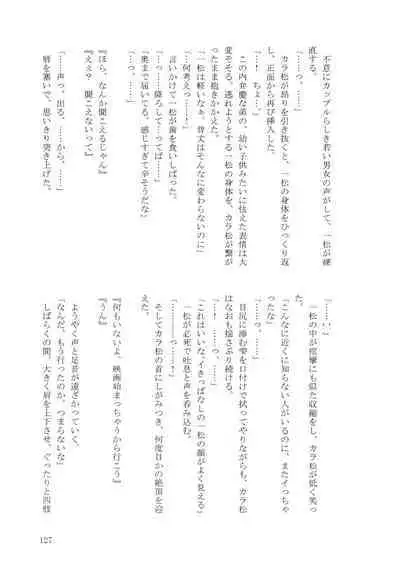 不意にカップルらしき若い男女の声がして、一松が硬
直する。
カラ松が昂りを引き抜くと、一松の身体をひっくり返
し、正面から再び挿入した。
「……！　ちょ…っ」
「……っ、……」
この内弁慶な弟の、幼い子供みたいに怯えた表情は大
変そそる。逃れようとする一松の身体を、カラ松が繋が
ったまま抱きかかえた。
「一松は軽いなぁ。背丈はそんなに変わらないのに」
「…何考えっ……！」
言いかけて一松が歯を食いしばった。
「……っ…降ろしてってば……」
「奥まで届いてる、感じすぎて辛そうだな」
「……っ、……」
『ほら、なんか聞こえるじゃん』
『えぇ？　聞こえないって』
「……声っ、出る、……から、……」
唇を塞いで、思いきり突き上げた。
「……、、」
一松の中が痙攣にも似た収縮をし、カラ松が低く笑っ
た。
「こんなに近くに知らない人がいるのに、またイっちゃ
ったな」
「……っ、……」
目尻に滲む雫を口付けで拭ってやりながらも、カラ松
はなおも揺さぶり続ける。
「……！　……っ、……」
「これはいいな、イきっぱなしの一松の顔がよく見える」
一松が必死で吐息と声を呑み込む。
「…………っ……！」
そしてカラ松の首にしがみつき、何度目かの絶頂を迎
えた。
『何もいないよ、映画始まっちゃうから行こう』
『うん』
ようやく声と足音が遠ざかっていく。
「なんだ、もう行ったのか、つまらないな」
しばらくの間、大きく肩を上下させ、ぐったりと四肢
127